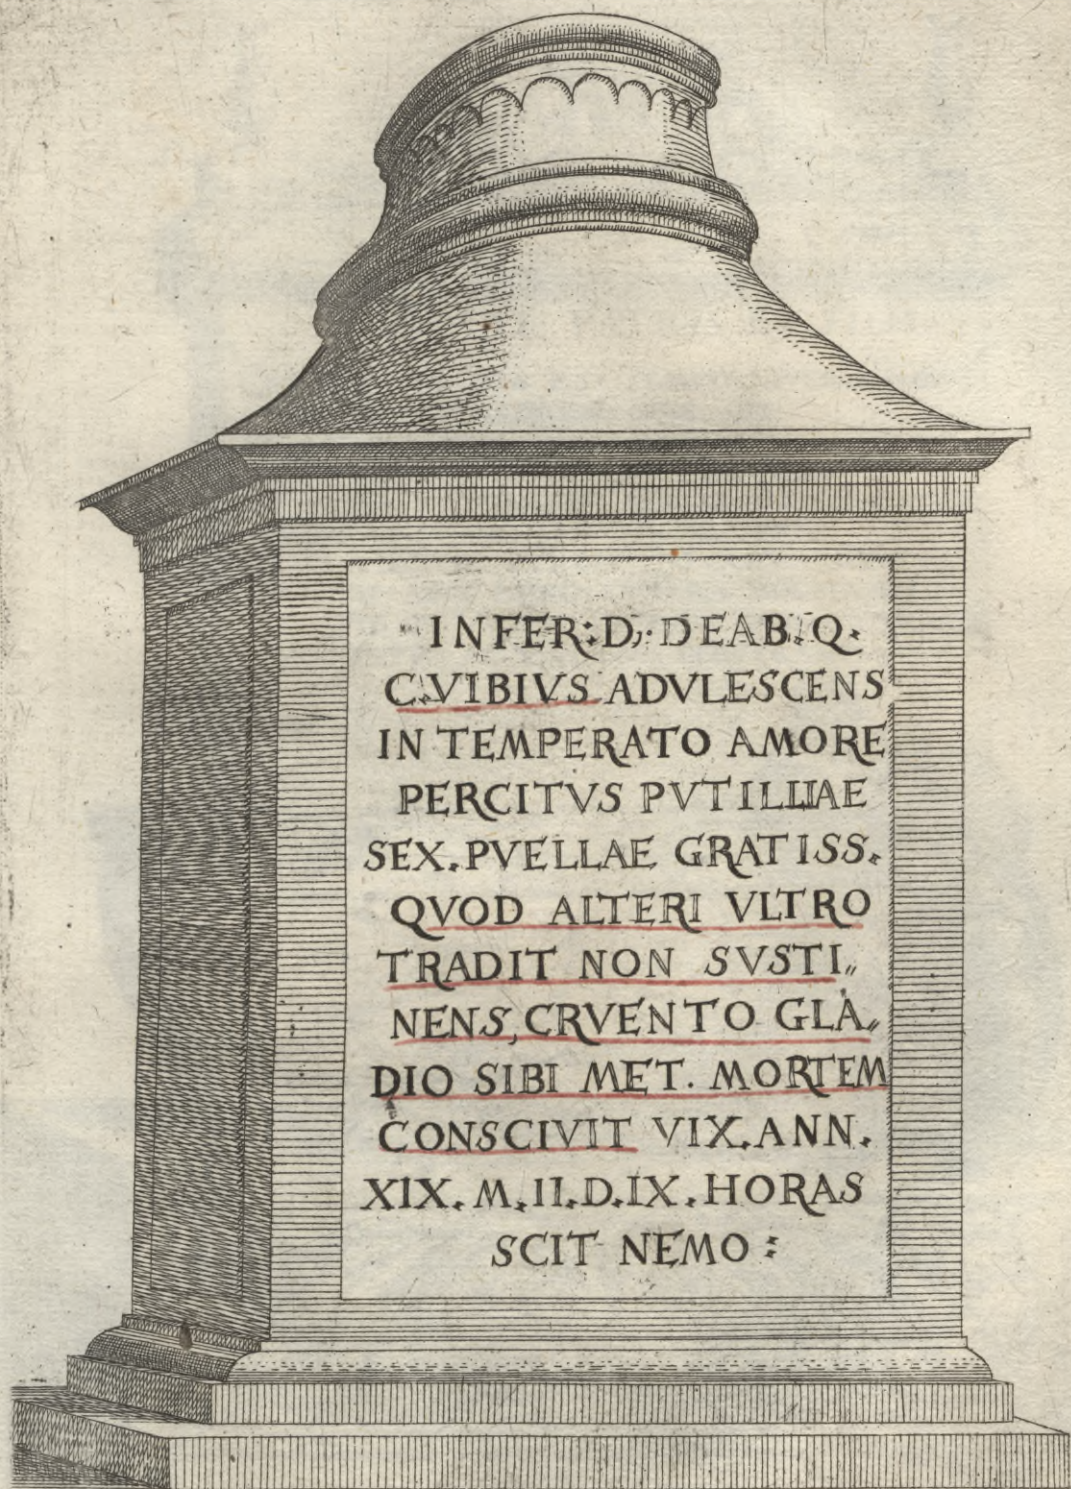 INFER: D: DEAB. Q.
C. VIBIVS ADVLESCENS
IN TEMPERATO AMORE
PERCITVS PVTILLIAE
SEX. PVELLAE GRATISS.
QVOD ALTERI VLTRO
TRADIT NON SVSTI„
NENS, CRVENTO GLA„
DIO SIBI MET. MORTEM
CONSCIVIT VIX. ANN.
XIX. M. II. D. IX. HORAS
SCIT NEMO :